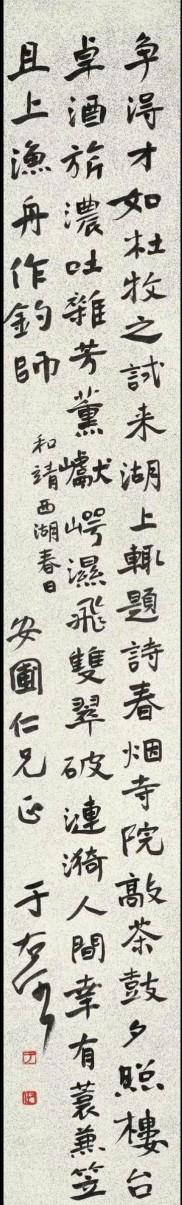 争得才如杜牧之試来湖上輒題詩春烟寺院敲茶鼓夕照樓台
卓酒旂濃吐雜芳薰巘崿濕飛雙翠破漣漪人間幸有蓑兼笠
且上漁舟作釣師 和靖西湖春日 安圃仁兄正 于右任